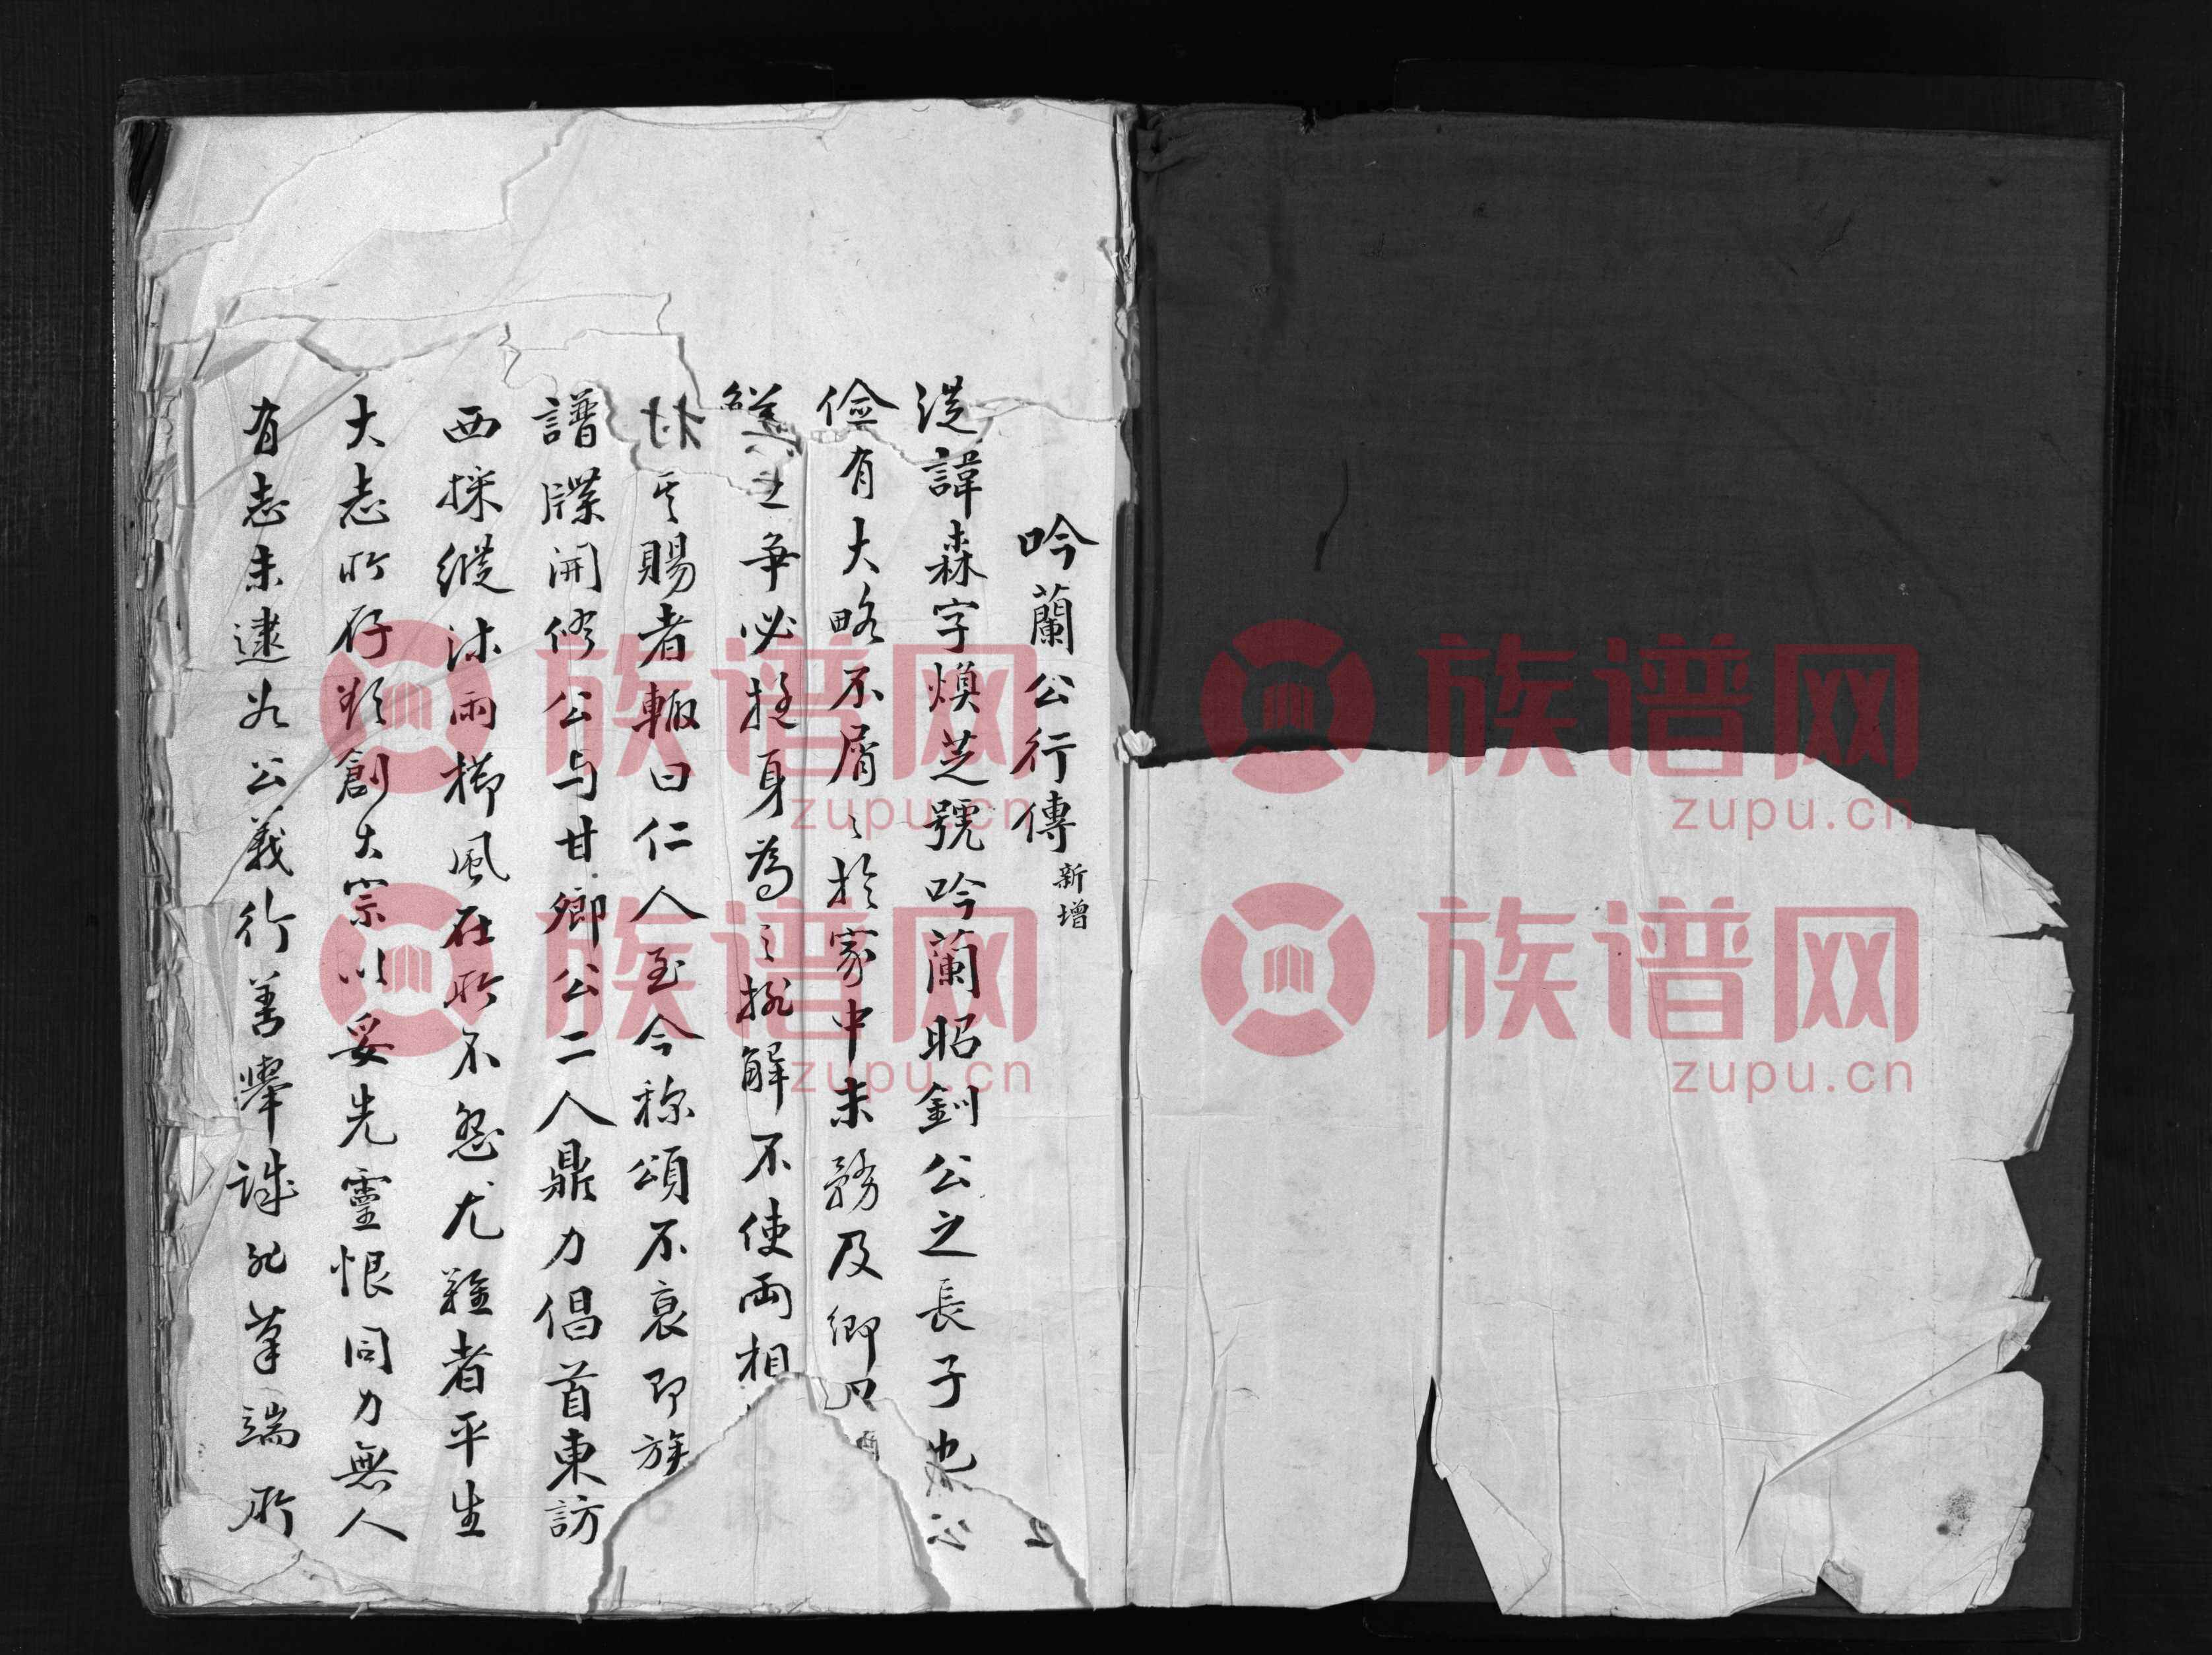 吟蘭公行傳 新增
諱森字煥芝號吟蘭昭釧公之長子也
儉有大略不屑〻於家中未務及鄉
之爭必挺身為之排解不使両相
賜者輙曰仁人至今称頌不衰即族
譜牒開修公与甘鄉公二人鼎力倡首東訪
西採縱沐雨櫛風在所不怨尤難者平生
大志所存欲創大宗以妥先靈恨同力無人
有志未逮然公義行善舉誠非筆端所
族谱网
zupu.cn
族谱网
zupu.cn
族谱网
zupu.cn
族谱网
zupu.cn